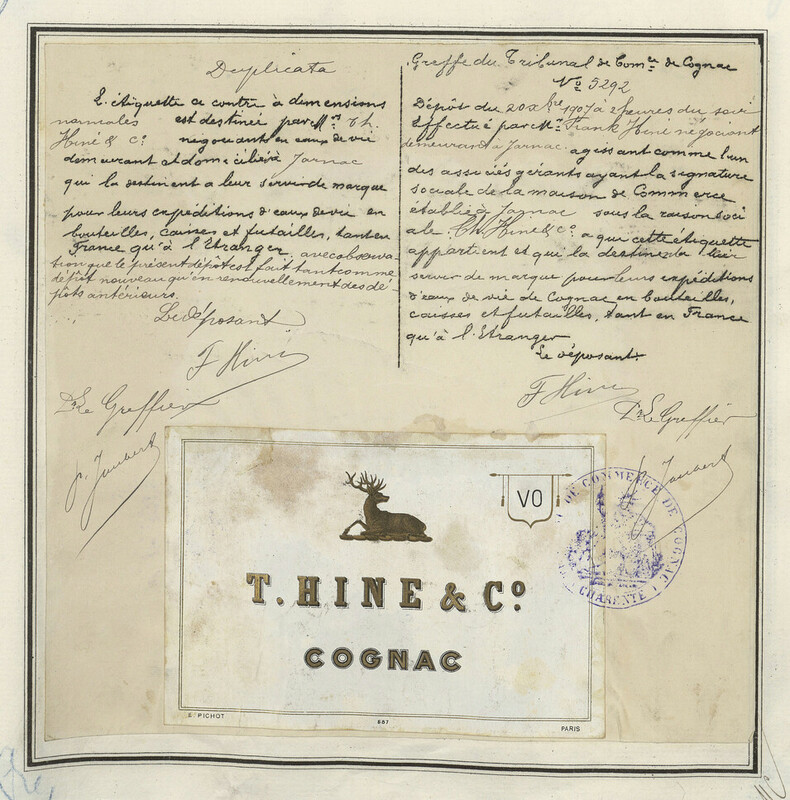 Duplicata
L'étiquette ci contre à dimensions
normales est destinée par Mrs Th.
Hine & Co négociant en eaux de vie
demeurant et domicilié à Jarnac
qui la destinent a leur servir de marque
pour leurs expéditions d'eaux de vie en
bouteilles, caisses et futailles, tant en
France qu'à l'Etranger, avec observa-
tion que le présent dépôt est fait tant comme
dépôt nouveau qu'en renouvellement des dé-
pôts antérieurs.
Le déposant
F Hine
Le Greffier
Greffe du Tribunal de Comce de Cognac
No 5292
Dépôt du 20 Xbre 1907 à 2 heures du soir
Effectué par Mr Frank Hine négociant
demeurant à Jarnac agissant comme l'un
des associés gérants ayant la signature
sociale de la maison de Commerce
établie à Jarnac sous la raison soci
ale Th. Hine & Co a que cette étiquette
appartient et qui la destine à leur
servir de marque pour leurs expéditions
d'eaux de vie de Cognac en bouteilles,
caisses et futailles, tant en France
qu'à l'Etranger
Le déposant
F Hine
Le Greffier
VO
T. HINE & Co
COGNAC
E. PICHOT
887
PARIS
DE COMMERCE DE COGNAC
CHARENTE